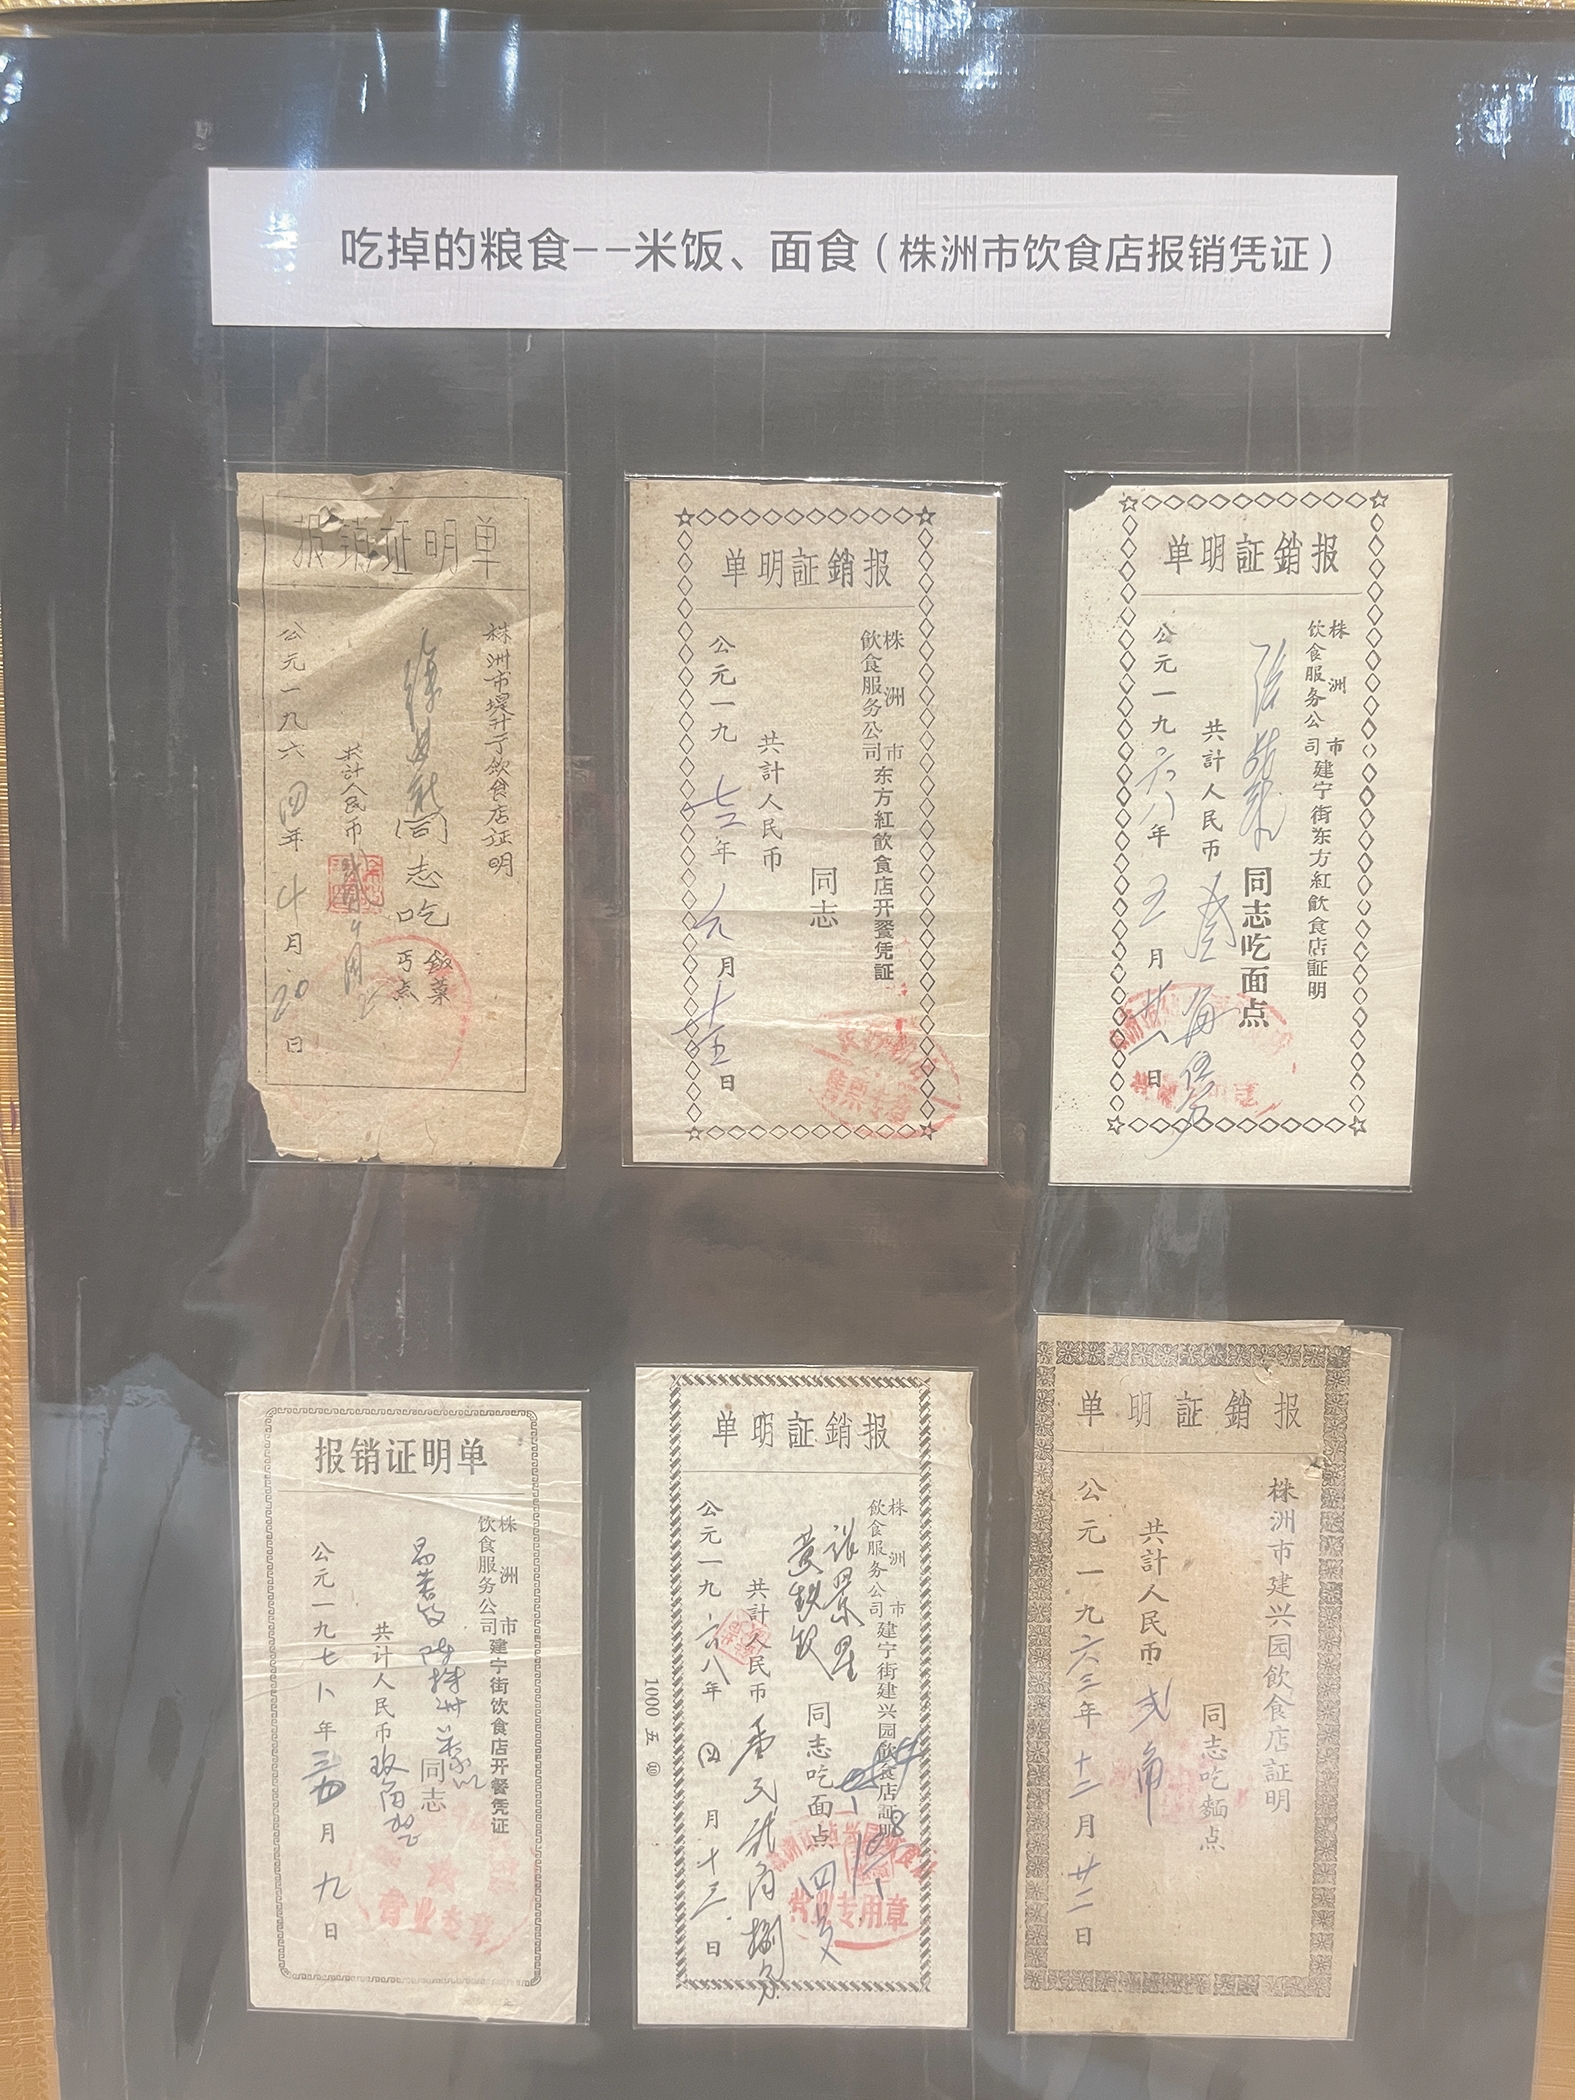 吃掉的粮食——米饭、面食（株洲市饮食店报销凭证）
报销证明单
株洲市堤升于饮食店证明
同志吃
飯菜
丐点
共計人民币
公元一九六四年十月20日
单明証銷报
株洲市
飲食服务公司
东方紅飲食店开餐凭証
同志
共計人民币
公元一九七二年元月十五日
售票专章
单明証銷报
株洲市
飲食服务公司
建宁街东方紅飲食店証明
同志吃面点
共計人民币壹角伍分
公元一九六八年五月廿八日
报销证明单
株洲市
饮食服务公司
建宁街饮食店开餐凭证
同志
共计人民币
公元一九七八年月九日
营业专章
单明証銷报
株洲市
飲食服务公司
建宁街建兴园飲食店証明
同志吃面点
共計人民币壹元捌分
公元一九六八年四月十三日
1000 五
专用章
单明証銷报
株洲市建兴园飲食店証明
同志吃麵点
共計人民币弍角
公元一九六三年十二月廿二日